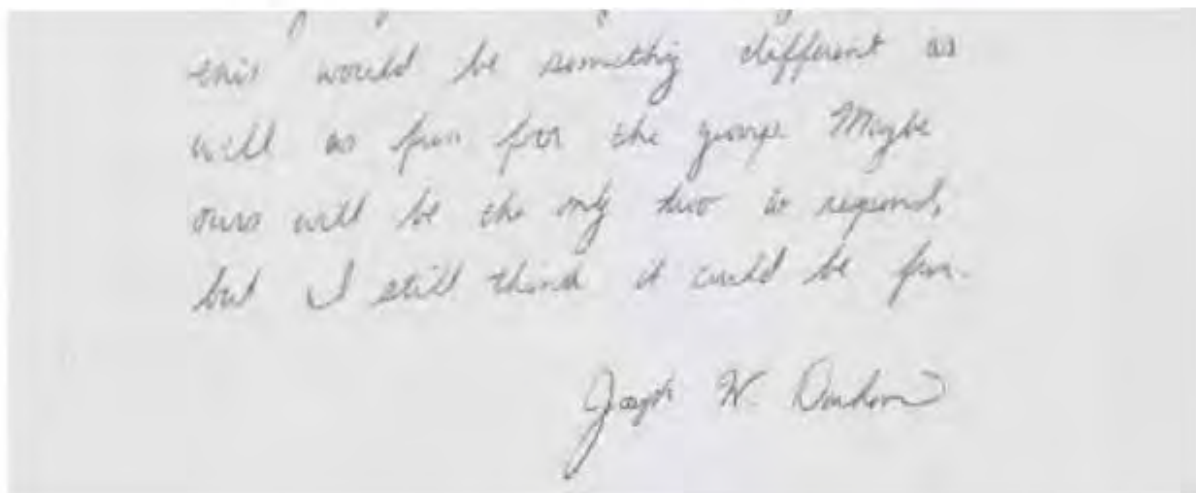 this would be somethig different as
well as fun for the group. Maybe
ours will be the only two to respond,
but I still think it could be fun.
Joseph W.